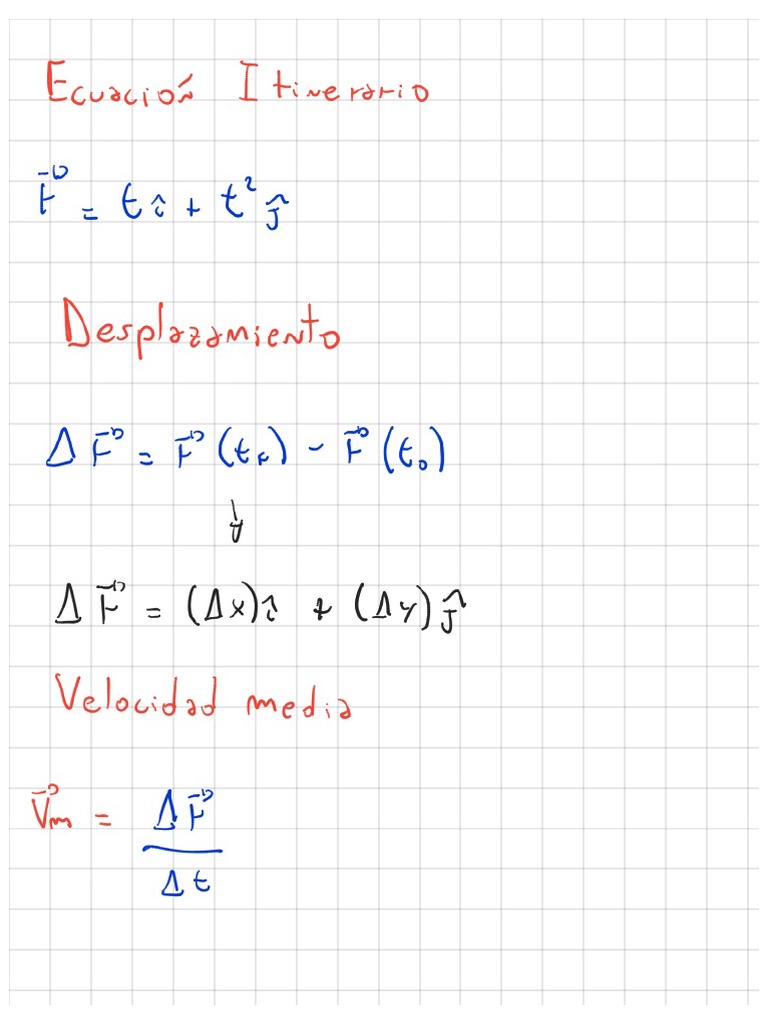 Ecuación Itinerario
r⃗ = t î + t² ĵ
Desplazamiento
Δr⃗ = r⃗(tF) - r⃗(t₀)
↓
Δr⃗ = (Δx)î + (Δy)ĵ
Velocidad media
V⃗m = Δr⃗
Δt